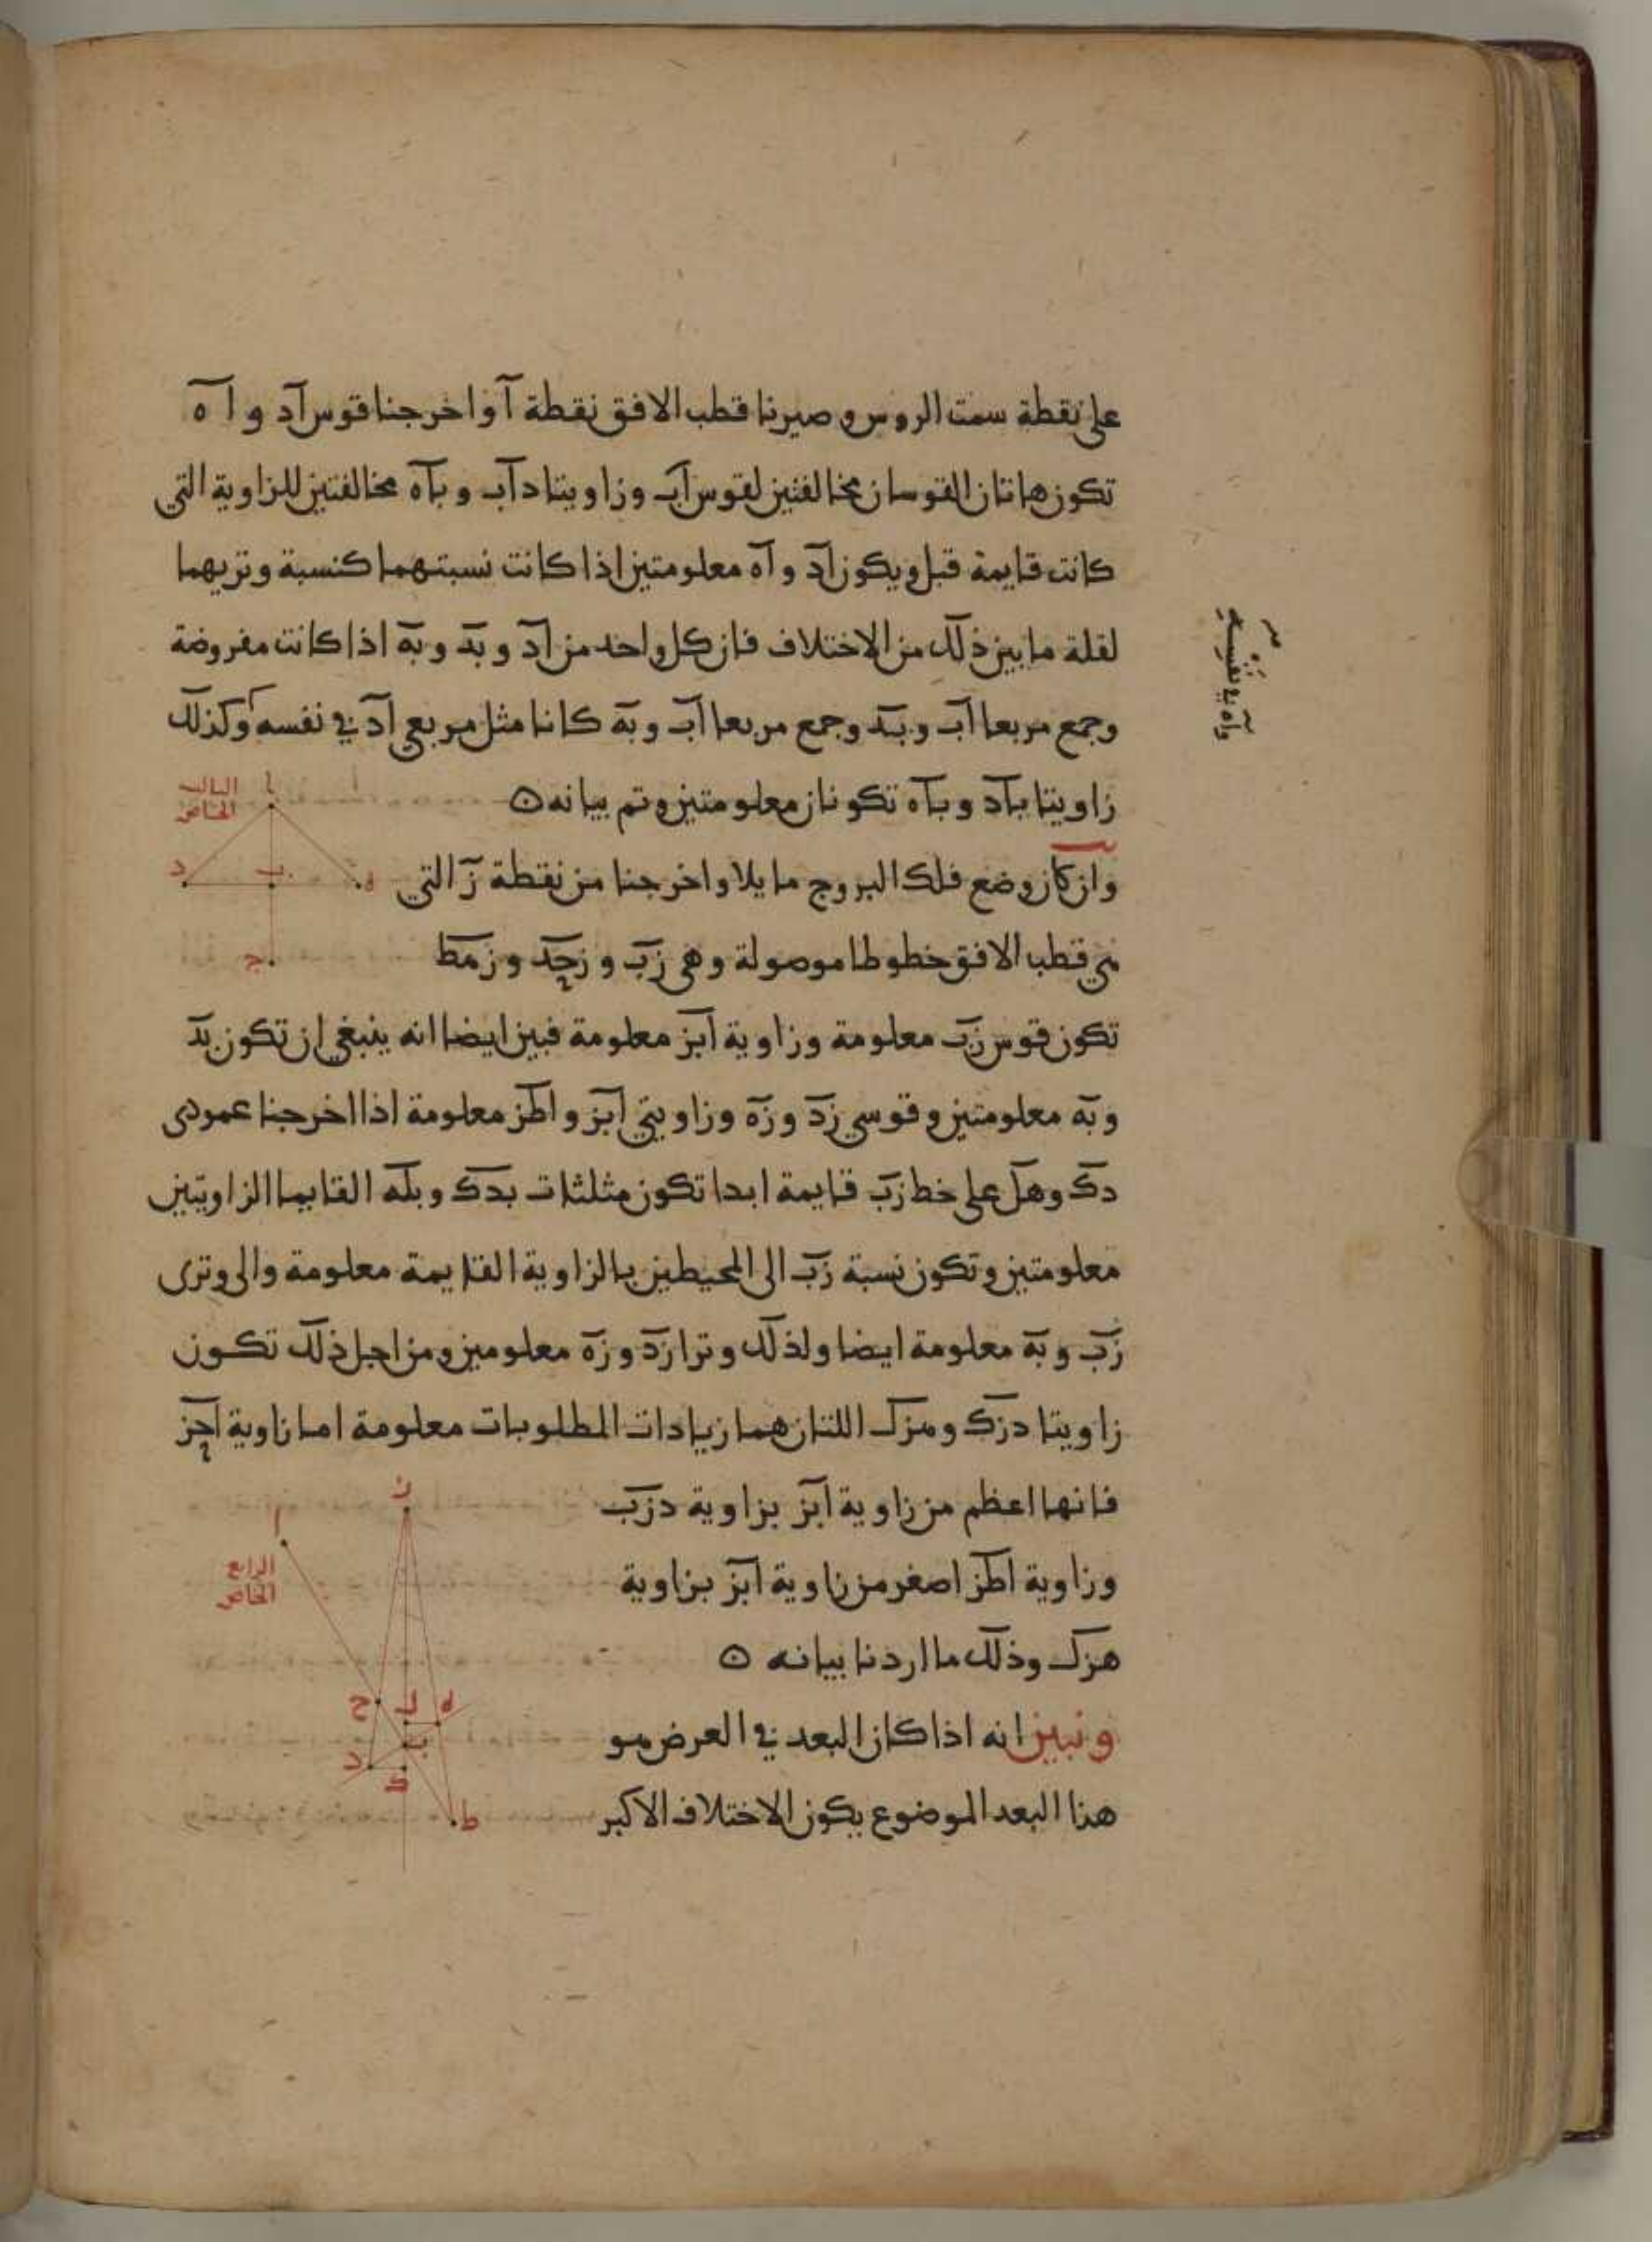 على نقطة سمت الروس وصيرنا قطب الافق نقطة آ واخرجنا قوس آد و آه
تكون هاتان القوسان مخالفتين لقوس آب وزاويتا دآب و بآه مخالفتين للزاوية التي
كانت قايمة قبل ويكون آد و آه معلومتين اذا كانت نسبتهما كنسبة وتريهما
لقلة ما بين ذلك من الاختلاف فان كل واحد من آد و بد و به اذا كانت مفروضة
وجمع مربعا آب و بد وجمع مربعا آب و به كانا مثل مربعي آد في نفسه وكذلك
وآه في نفسه
زاويتا بآد و بآه تكونان معلومتين وتم بيانه
الثالث
الخامس
ا
د
ب
ه
ج
وان كان وضع فلك البروج مايلا واخرجنا من نقطة ز التي
هي قطب الافق خطوطا موصولة وهي زب و زحد و زهط
تكون قوس زب معلومة وزاوية ابز معلومة فبين ايضا انه ينبغي ان تكون بد
وبه معلومتين وقوسي زد وزه وزاويتي ابز واطز معلومة اذا اخرجنا عمودى
دك وهل على خط زب قايمة ابدا تكون مثلثات بدك وبله القايما الزاويتين
معلومتين وتكون نسبة زب الى المحيطين بالزاوية القايمة معلومة والى وترى
زب وبه معلومة ايضا ولذلك وترا زد وزه معلومين ومن اجل ذلك تكون
زاويتا دزك وهزل اللتان هما زيادات المطلوبات معلومة اما زاوية احز
فانها اعظم من زاوية ابز بزاوية دزب
وزاوية اطز اصغر من زاوية ابز بزاوية
هزل وذلك ما اردنا بيانه
ز
ا
الرابع
الخامس
ح
ل
ه
ب
د
ك
ط
ونبين انه اذا كان البعد في العرض هو
هذا البعد الموضوع يكون الاختلاف الاكبر